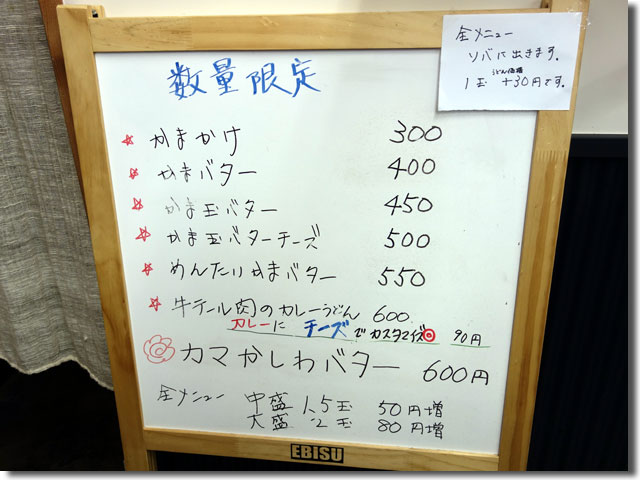 数量限定
☆ かまかけ 300
☆ かまバター 400
☆ かま玉バター 450
☆ かま玉バターチーズ 500
☆ めんたいかまバター 550
☆ 牛テール肉のカレーうどん 600
カレーに チーズ でカスタマイズ◎ 90円
カマかしわバター 600円
全メニュー 中盛 1,5玉 50円増
大盛 2玉 80円増
EBISU
全メニュー
ソバに出きます。
うどん価格
1玉 +30円です。